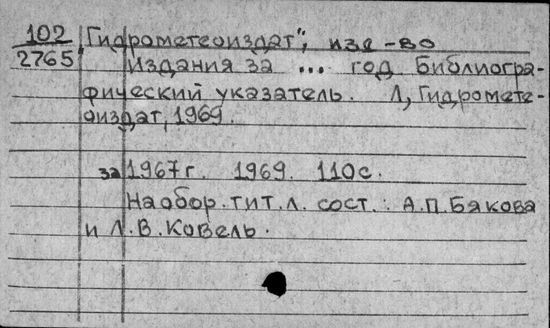 102 Гидрометеоиздат", изд-во
2765 Издания за ... год Библиогра-
фический указатель. Л, Гидромете-
оиздат, 1969.
за 1967г. 1969. 110с.
На обор. тит. л. сост.: А.П.Бякова
и Л.В.Ковель.